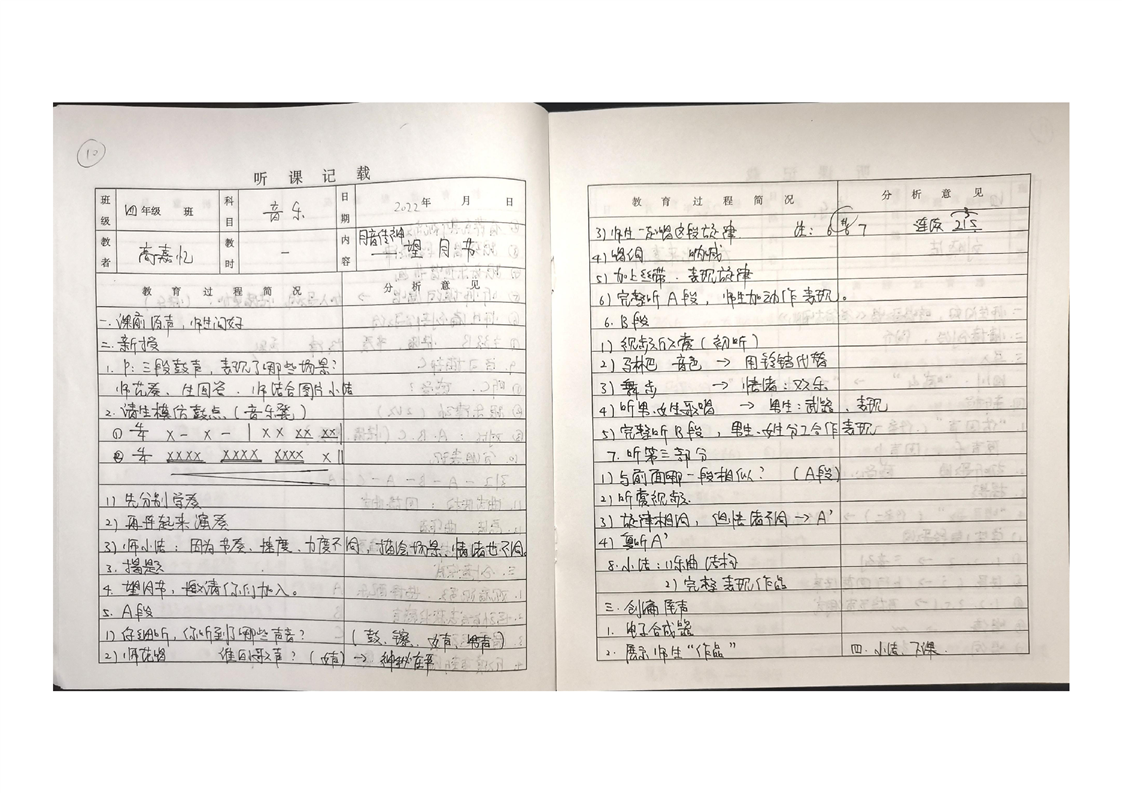 10
听课记载
班级 四年级 班 科目 音乐 日期 2022年 月 日
教者 高嘉忆 教时 一 内容 月亮节
教育过程简况 分析意见
一.课前 师生问好
二.新授
1. P:三段鼓声,表现了哪些场景?
师范奏、生回答.师结合图片小结
2.请生模仿鼓点(音乐凳)
① 2/4 X - X - | X X XX XX ||
② 2/4 XXXX XXXX XXXX X ||
1)先分别学奏
2)再合起来演奏
3)师小结:因为节奏、速度、力度不同,描绘场景、情绪也不同。
3.揭题
4.望月节,邀请你们加入。
5. A段
1)仔细听,你听到了哪些声音? (鼓、镲、女声、男声)
2)师范唱 谁的歌声?(女声)→ 神秘
教育过程简况 分析意见
3)师生一起唱这段旋律 注: 6 7 连线 215
4)唱词
5)加上丝带.表现旋律
6)完整听A段,师生加动作表现。
6. B段
1)视频(初听)
2)马林巴 音色 → 用铃铛代替
3)舞步 → 情绪:欢乐
4)听男、女生歌唱 → 男生:武器、表现
5)完整听B段,男生、女生分工合作表现
7.听第三部分
1)与前面哪一段相似? (A段)
2)听赏视频
3)旋律相同,但情绪不同→A'
4)复听A'
8.小结:1)乐曲结构
2)完整表现作品
三.创编尾声
1.电子合成器
2.展示师生“作品” 四.小结 下课.